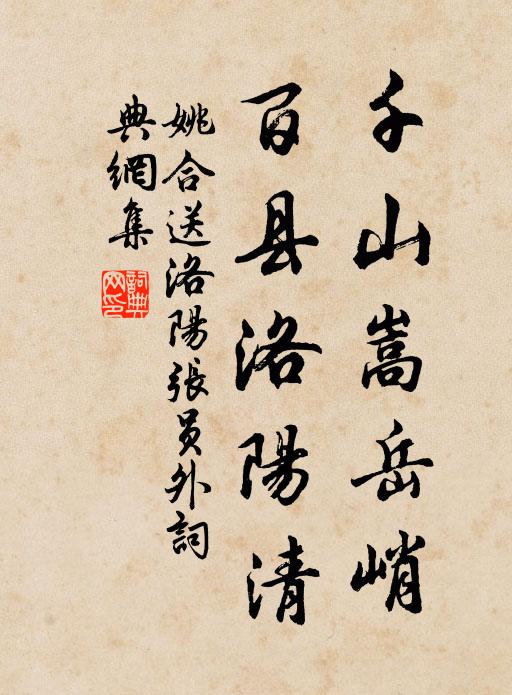 千山嵩岳峭
百县洛陽清
姚合送洛陽張员外詞
典網集
詞典
网印